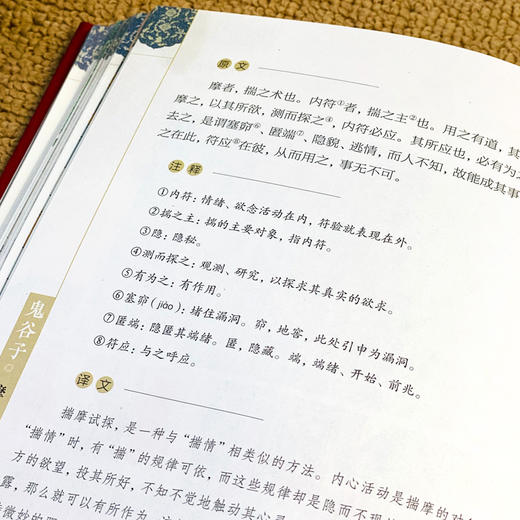 原文
摩者，揣之术也。内符①者，揣之主②也。用之有道，其
摩之，以其所欲，测而探之④，内符必应。其所应也，必有为之
去之，是谓塞窌⑥、匿端⑦、隐貌、逃情，而人不知，故能成其事
之在此，符应⑧在彼，从而用之，事无不可。
注释
①内符：情绪、欲念活动在内，符验就表现在外。
②揣之主：揣的主要对象，指内符。
③隐：隐秘。
④测而探之：观测、研究，以探求其真实的欲求。
⑤有为之：有作用。
⑥塞窌(jiào)：堵住漏洞。窌，地窖，此处引申为漏洞。
⑦匿端：隐匿其端绪。匿，隐藏。端，端绪、开始、前兆。
⑧符应：与之呼应。
译文
揣摩试探，是一种与“揣情”相类似的方法。内心活动是揣摩的对
“揣情”时，有“揣”的规律可依，而这些规律却是隐而不现
方的欲望，投其所好，不知不觉地触动其心灵
露，那么就可以有所作为
微妙的
鬼谷子